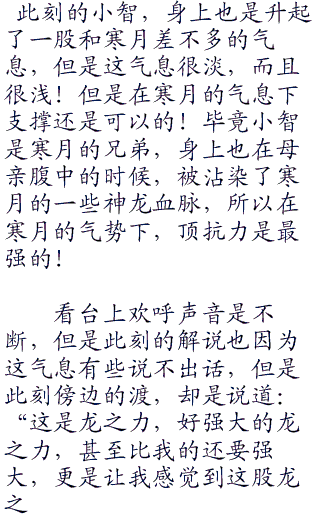 此刻的小智，身上也是升起
了一股和寒月差不多的气
息，但是这气息很淡，而且
很浅！但是在寒月的气息下
支撑还是可以的！毕竟小智
是寒月的兄弟，身上也在母
亲腹中的时候，被沾染了寒
月的一些神龙血脉，所以在
寒月的气势下，顶抗力是最
强的！
看台上欢呼声音是不
断，但是此刻的解说也因为
这气息有些说不出话，但是
此刻傍边的渡，却是说道：
“这是龙之力，好强大的龙
之力，甚至比我的还要强
大，更是让我感觉到这股龙
之